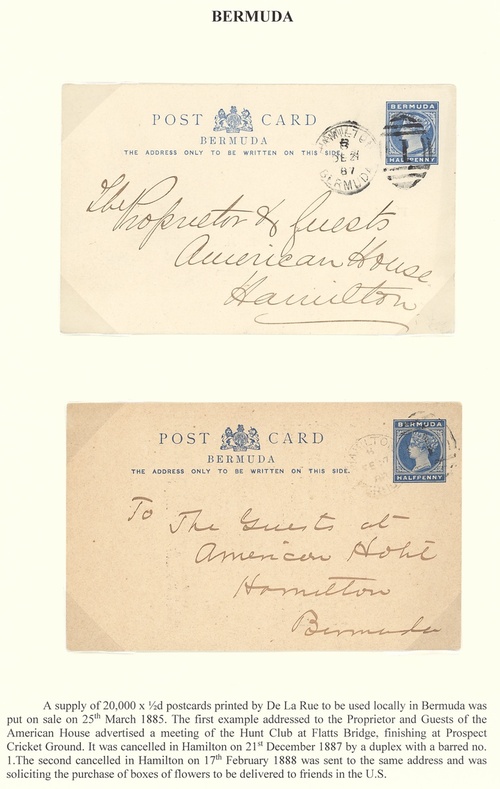 BERMUDA
POST CARD
BERMUDA
THE ADDRESS ONLY TO BE WRITTEN ON THIS SIDE.
BERMUDA
HALFPENNY
HAMILTON
BERMUDA
87
1
The
Proprietor & Guests
American House
Hamilton
POST CARD
BERMUDA
THE ADDRESS ONLY TO BE WRITTEN ON THIS SIDE.
BERMUDA
HALFPENNY
To The Guests at
American Hotel
Hamilton
Bermuda
A supply of 20,000 x ½d postcards printed by De La Rue to be used locally in Bermuda was
put on sale on 25th March 1885. The first example addressed to the Proprietor and Guests of the
American House advertised a meeting of the Hunt Club at Flatts Bridge, finishing at Prospect
Cricket Ground. It was cancelled in Hamilton on 21st December 1887 by a duplex with a barred no.
1.The second cancelled in Hamilton on 17th February 1888 was sent to the same address and was
soliciting the purchase of boxes of flowers to be delivered to friends in the U.S.